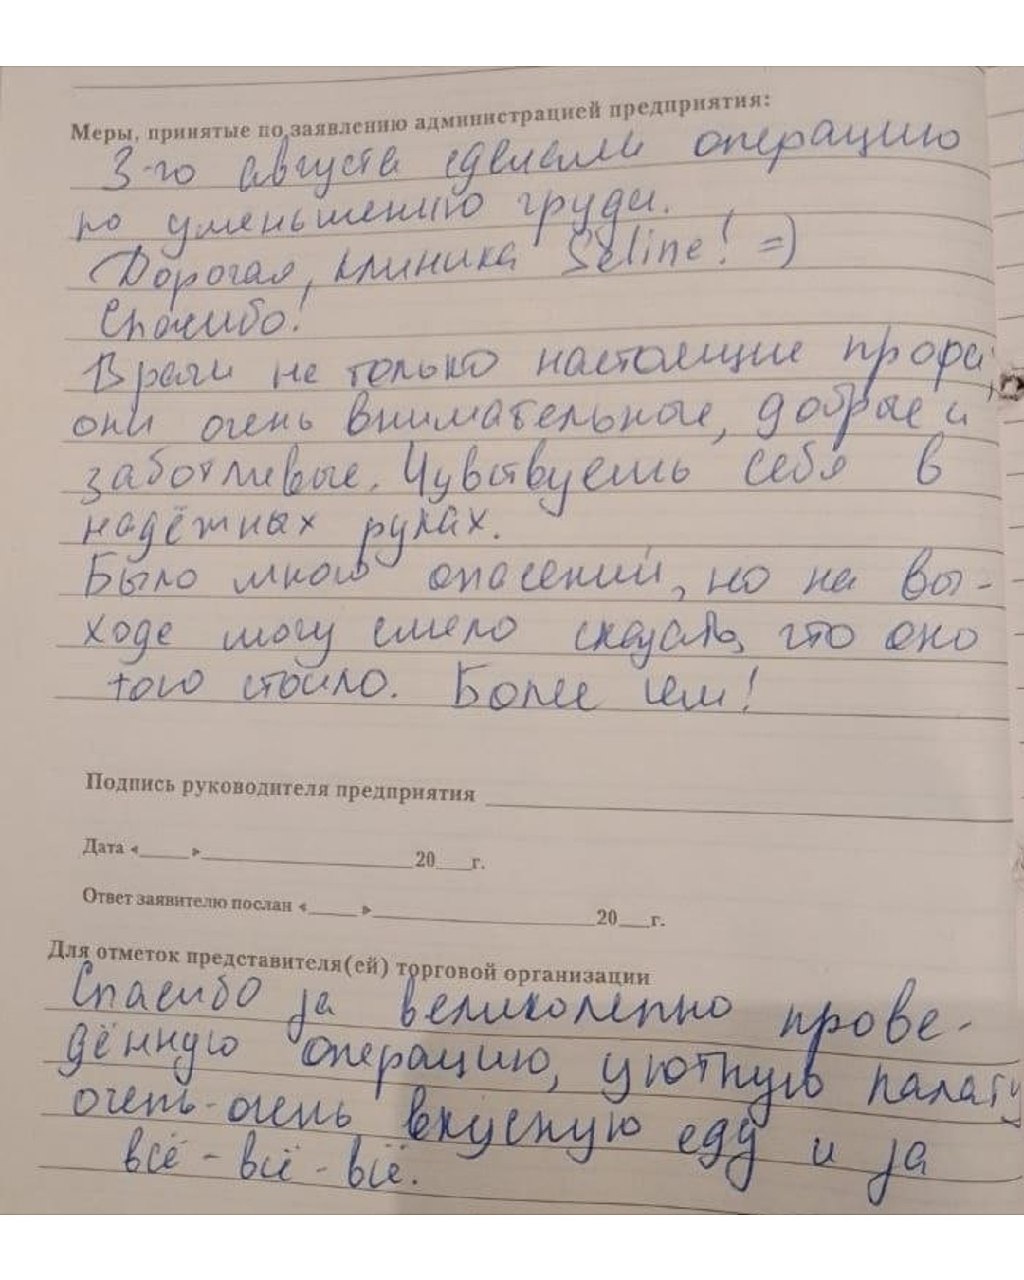 Меры, принятые по заявлению администрацией предприятия:
3-го августа сделали операцию
по уменьшению груди.
Дорогая, клиника Seline! =)
Спасибо!
Врачи не только настоящие профи,
они очень внимательные, добрые и
заботливые. Чувствуешь себя в
надёжных руках.
Было много опасений, но на вы-
ходе могу смело сказать, что оно
того стоило. Более чем!
Подпись руководителя предприятия
Дата «____»____________20___г.
Ответ заявителю послан «____»____________20___г.
Для отметок представителя(ей) торговой организации
Спасибо за великолепно прове-
дённую операцию, уютную палату
очень-очень вкусную еду и за
всё-всё-всё.